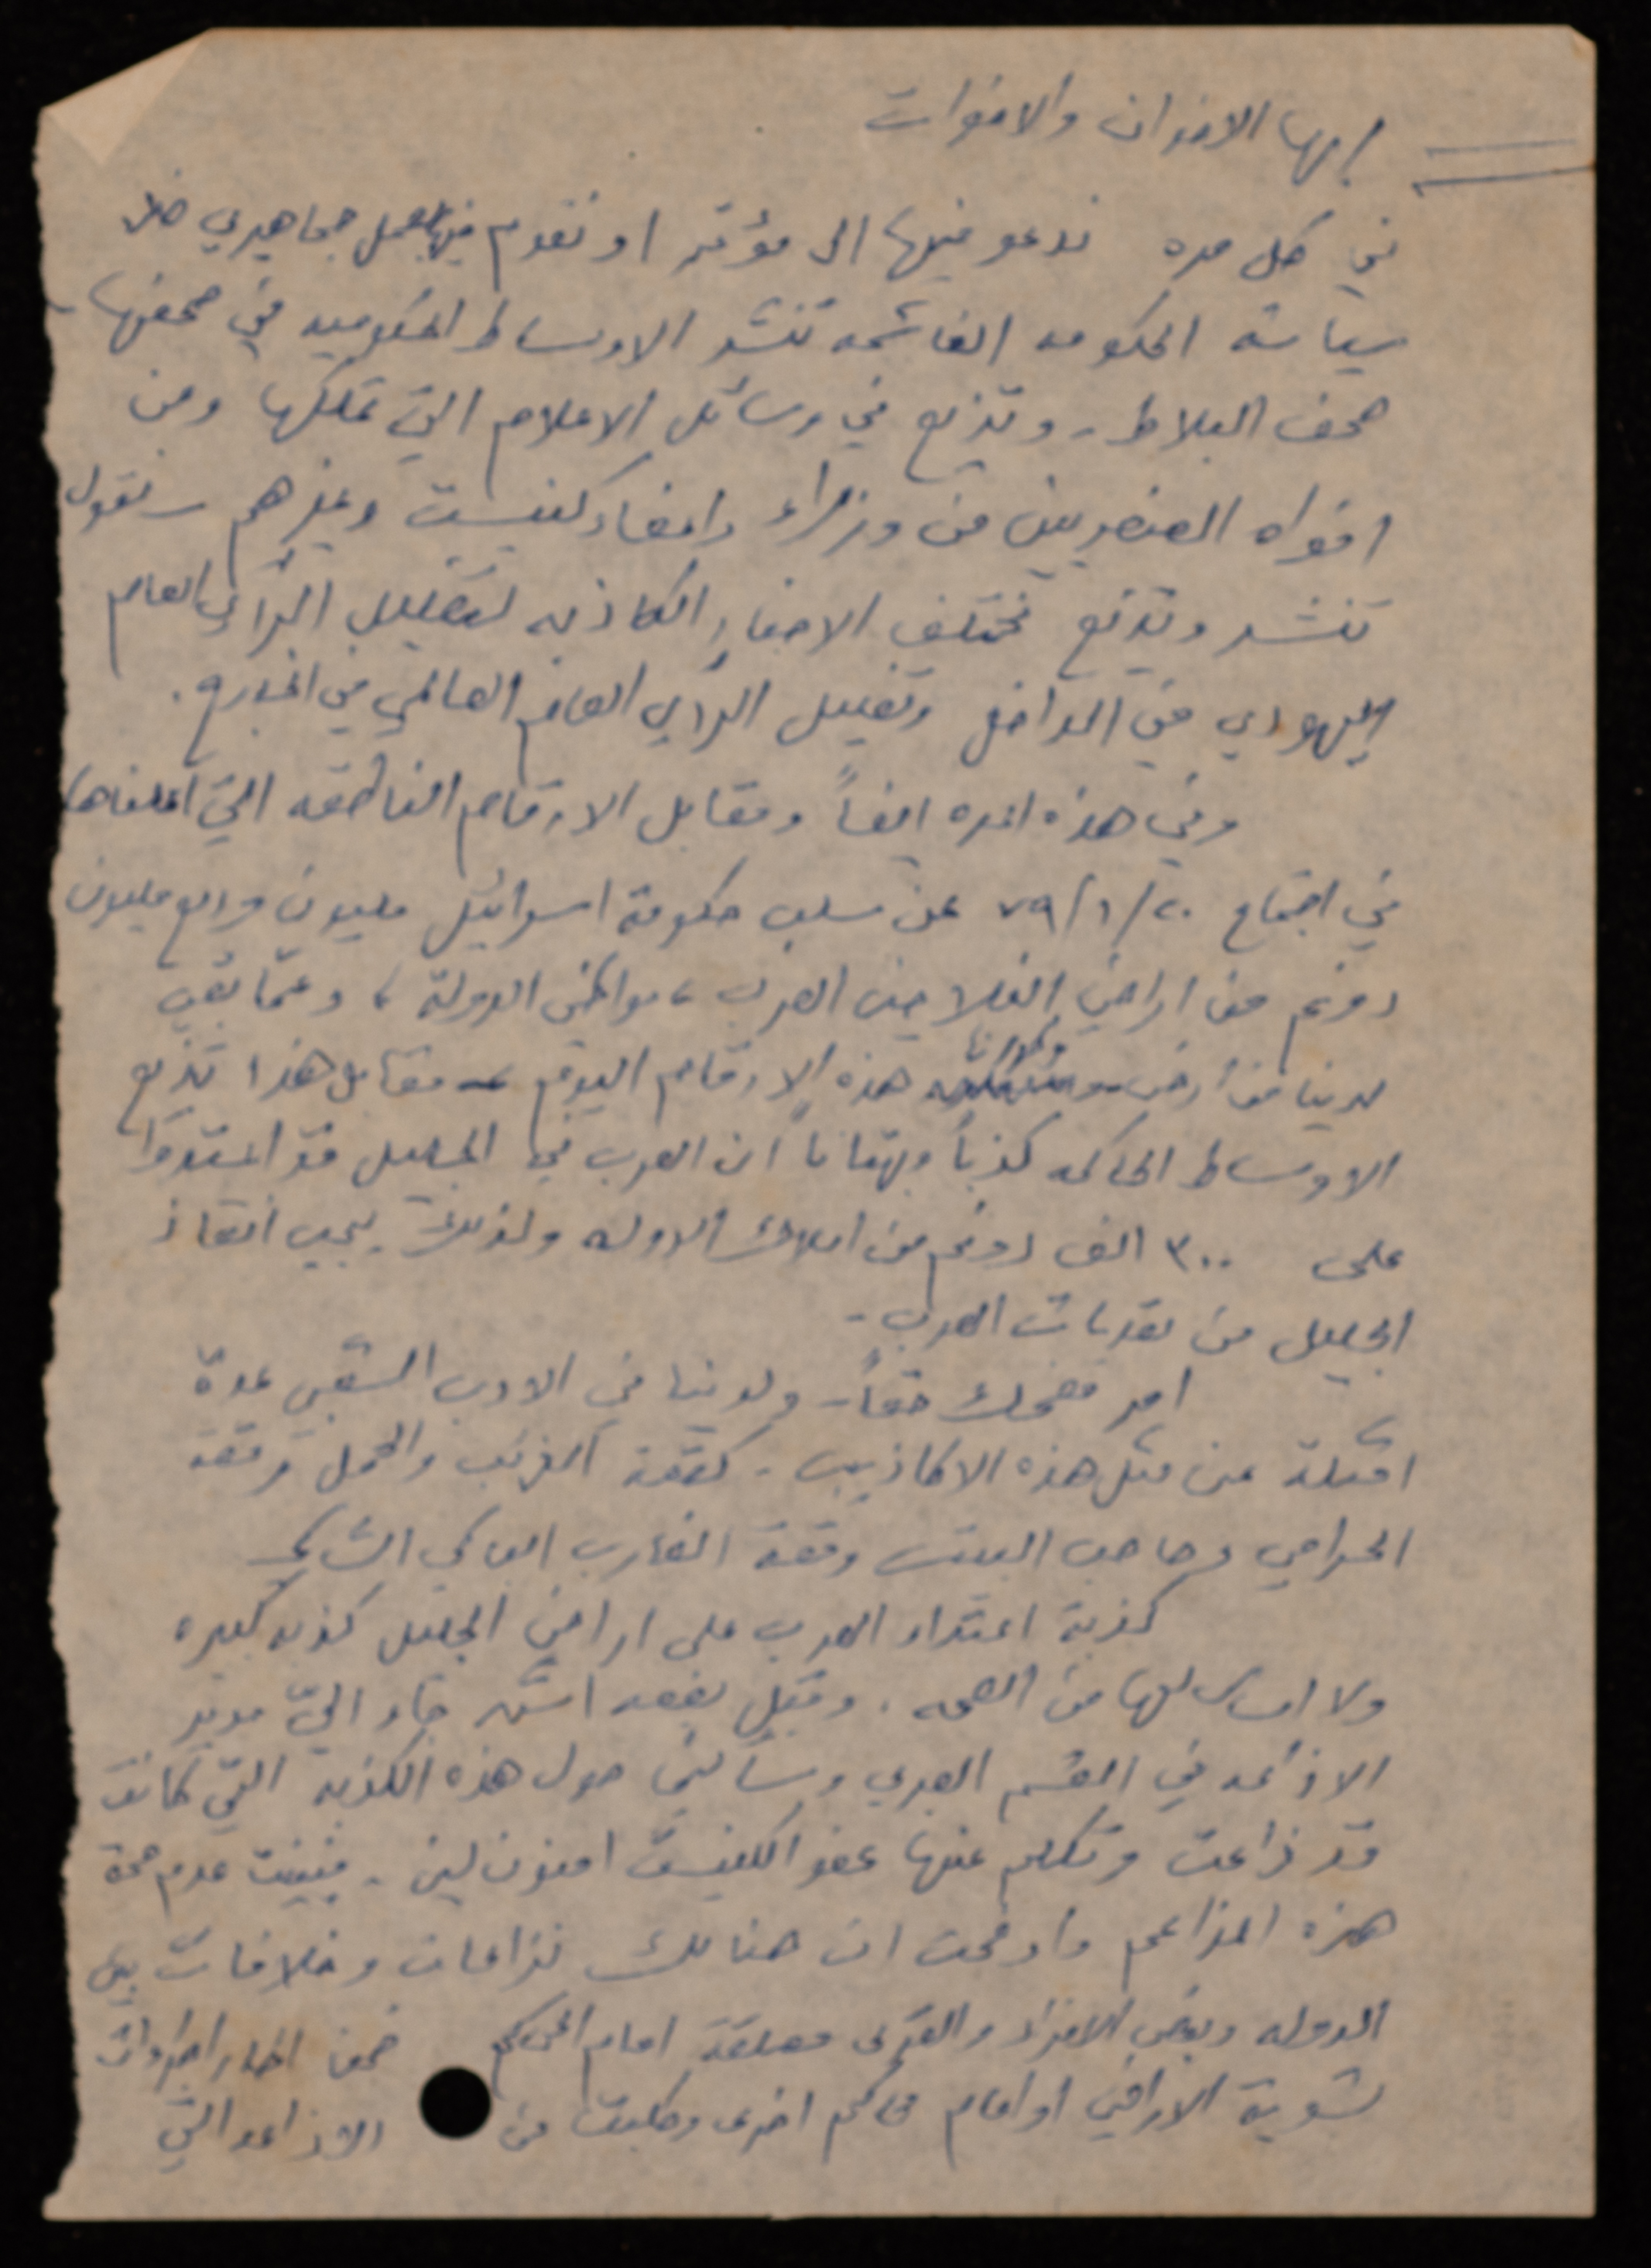 ايها الاخوان والاخوات
في كل مره ندعو فيها الى مؤتمر او نقوم فيها بعمل جماهيري ضد
سياسة الحكومه الغاشمه تنشر الاوساط الحكوميه في صحفها -
صحف البلاط - وتذيع في وسائل الاعلام التي تملكها ومن
افواه العنصريين من وزراء واعضاء كنيست وغيرهم - نقول
تنشر وتذيع مختلف الاخبار الكاذبه لتضليل الرأي العام
اليهودي في الداخل وتضليل الرأي العام العالمي في الخارج.
وفي هذه المره ايضاً ومقابل الارقام الناطقه التي اعلناها
في اجتماع ٢٠/١/٧٩ عن سلب حكومة اسرائيل مليون وربع مليون
دونم من اراضي الفلاحين العرب، مواطني الدولة، وعمّا بقي
لدينا من أرض وكررنا هذه الارقام اليوم - مقابل هذا تذيع
الاوساط الحاكمه كذباً وبهتانا ان العرب في الجليل قد اعتدوا
على ٣٠٠ الف دونم من املاك الدوله ولذلك يجب انقاذ
الجليل من تعديات العرب -
امر مضحك حقاً - ولدينا في الادب الشعبي عدة
امثلة عن مثل هذه الاكاذيب - كقصة الذئب والحمل وقصة
الحرامي وصاحب البيت وقصة الضارب الباكي الشاكي
كذبة اعتداء العرب على اراضي الجليل كذبه كبيره
ولا اساس لها من الصحه. وقبل بضعة اشهر جاء اليّ مدير
الاذاعه في القسم العبري وسألني حول هذه الكذبه التي كانت
قد ذاعت وتكلم عنها عضو الكنيست امنون لين - فبينت عدم صحة
هذه المزاعم واوضحت ان هنالك نزاعات وخلافات بين
الدوله وبعض الافراد والقرى معلقة امام المحاكم ضمن اطار اجراءات
تسوية الاراضي او امام محاكم اخرى وطلبت من الاذاعه التي